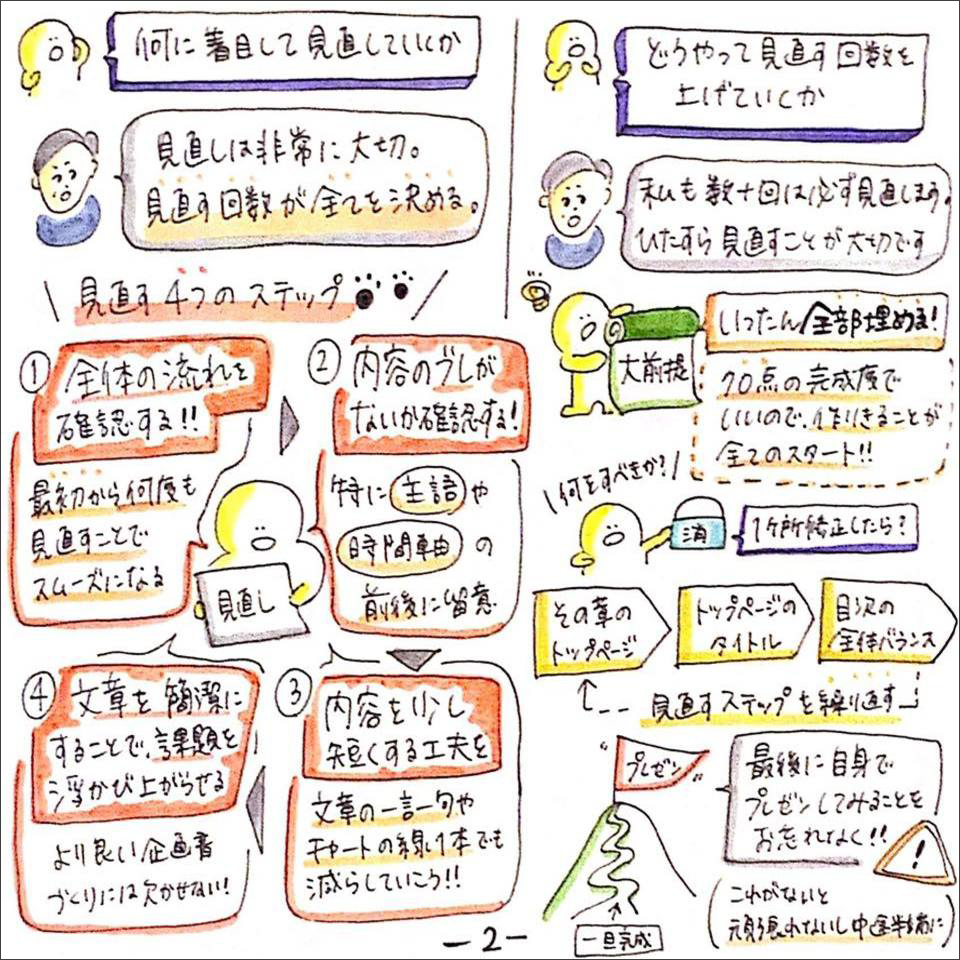 何に着目して見直していくか
見直しは非常に大切。
見直す回数が全てを決める。
見直す4つのステップ
①
全体の流れを
確認する!!
最初から何度も
見直すことで
スムーズになる
②
内容のブレが
ないか確認する!
特に主語や
時間軸の
前後に留意
見直し
③
内容を少し
短くする工夫を
文章の一言一句や
チャートの線1本でも
減らしていこう!!
④
文章を簡潔に
することで、課題を
浮かび上がらせる
より良い企画書
づくりには欠かせない!
どうやって見直す回数を
上げていくか
私も数十回は必ず見直します。
ひたすら見直すことが大切です
大前提
いったん全部埋める!
70点の完成度で
いいので、作りきることが
全てのスタート!!
何をすべきか?
消
1ケ所修正したら?
その章の
トップページ
トップページの
タイトル
目次の
全体バランス
見直すステップを繰り返す
"プレゼン"
一旦完成
最後に自身で
プレゼンしてみることを
お忘れなく!!
!
(これがないと
頑張れないし中途半端に)
-2-